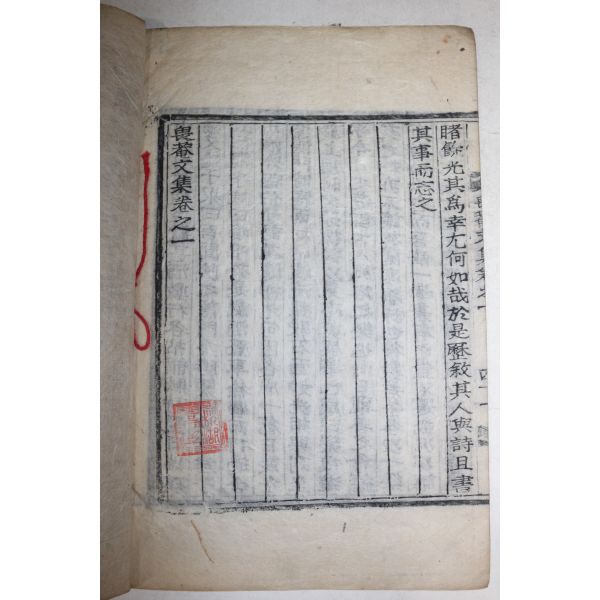 睹餘光其爲幸尤何如哉於是歷敘其人與詩且書
其事而忘之
畏菴文集卷之一